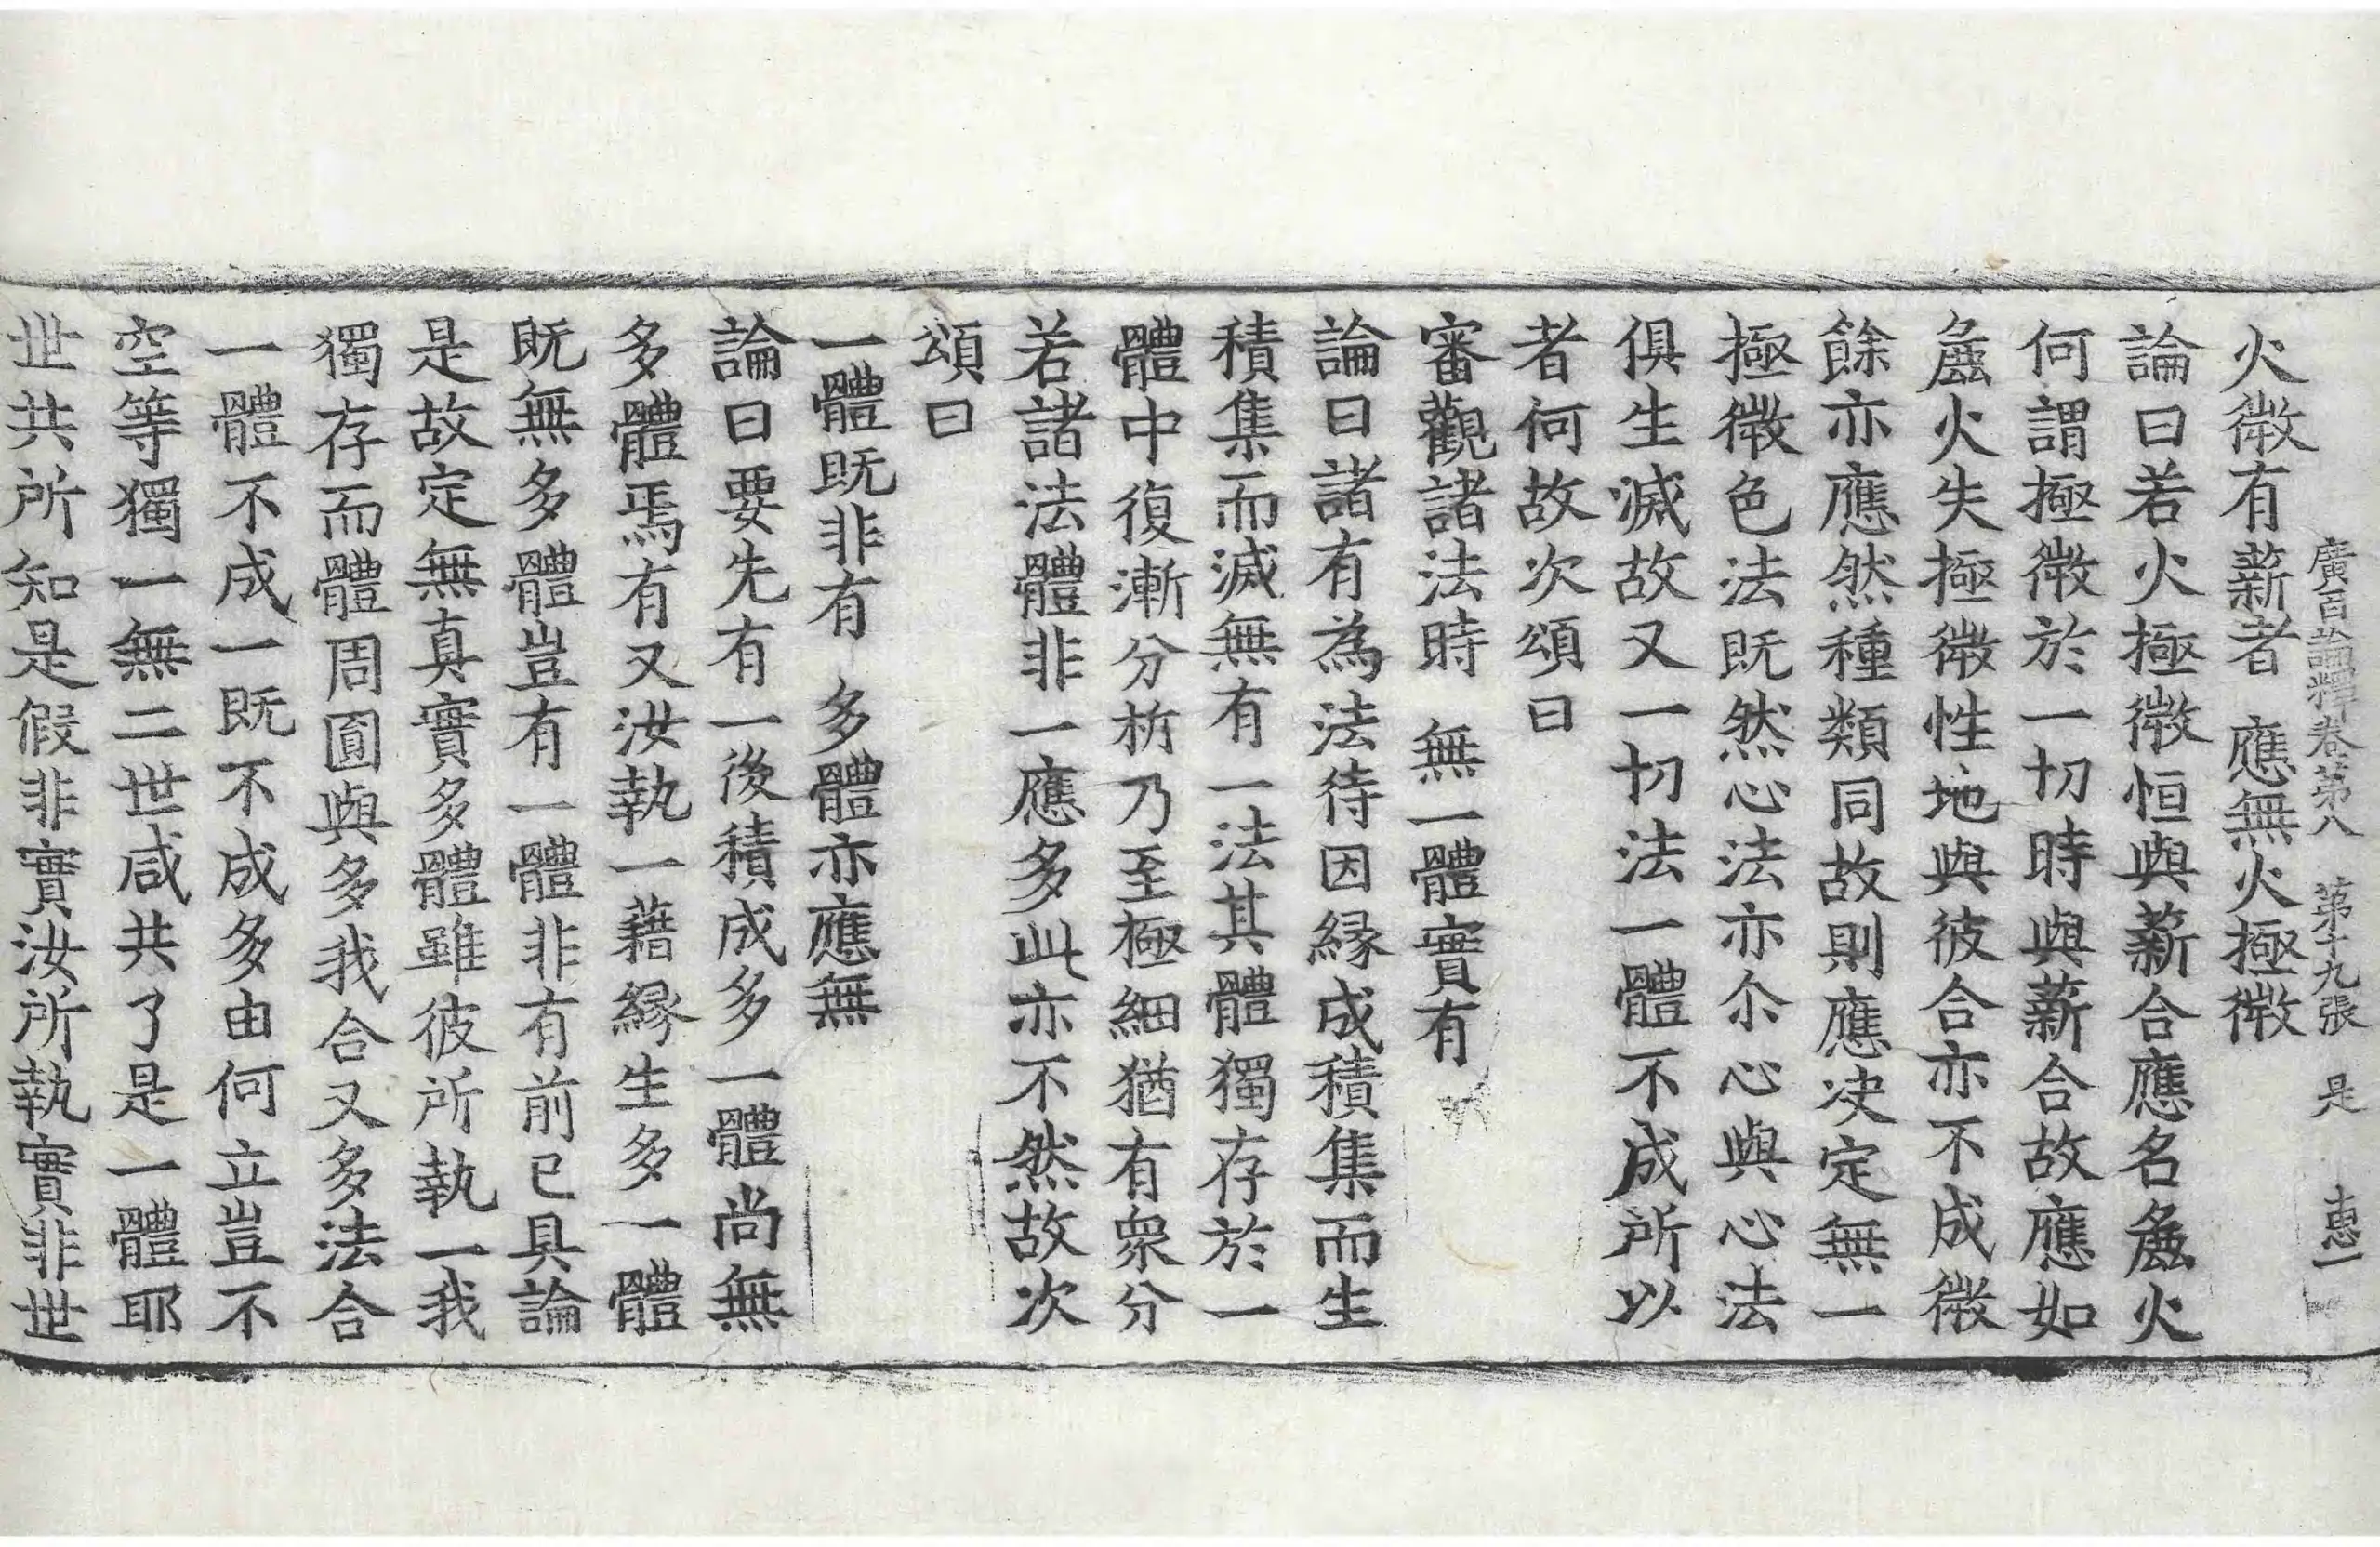 廣百論釋卷第八 第十九張 是 惠一
火微有薪者 應無火極微
論曰若火極微恒與薪合應名麁火
何謂極微於一切時與薪合故應如
麁火失極微性地與彼合亦不成微
餘亦應然種類同故則應决定無一
極微色法既然心法亦尒心與心法
俱生滅故又一切法一體不成所以
者何故次頌曰
審觀諸法時 無一體實有
論曰諸有為法待因縁成積集而生
積集而滅無有一法其體獨存於一
體中復漸分析乃至極細猶有衆分
若諸法體非一應多此亦不然故次
頌曰
一體既非有 多體亦應無
論曰要先有一後積成多一體尚無
多體焉有又汝執一藉縁生多一體
既無多體豈有一體非有前已具論
是故定無真實多體雖彼所執一我
獨存而體周圓與多我合又多法合
一體不成一既不成多由何立豈不
空等獨一無二世咸共了是一體耶
世共所知是假非實汝所執實非世